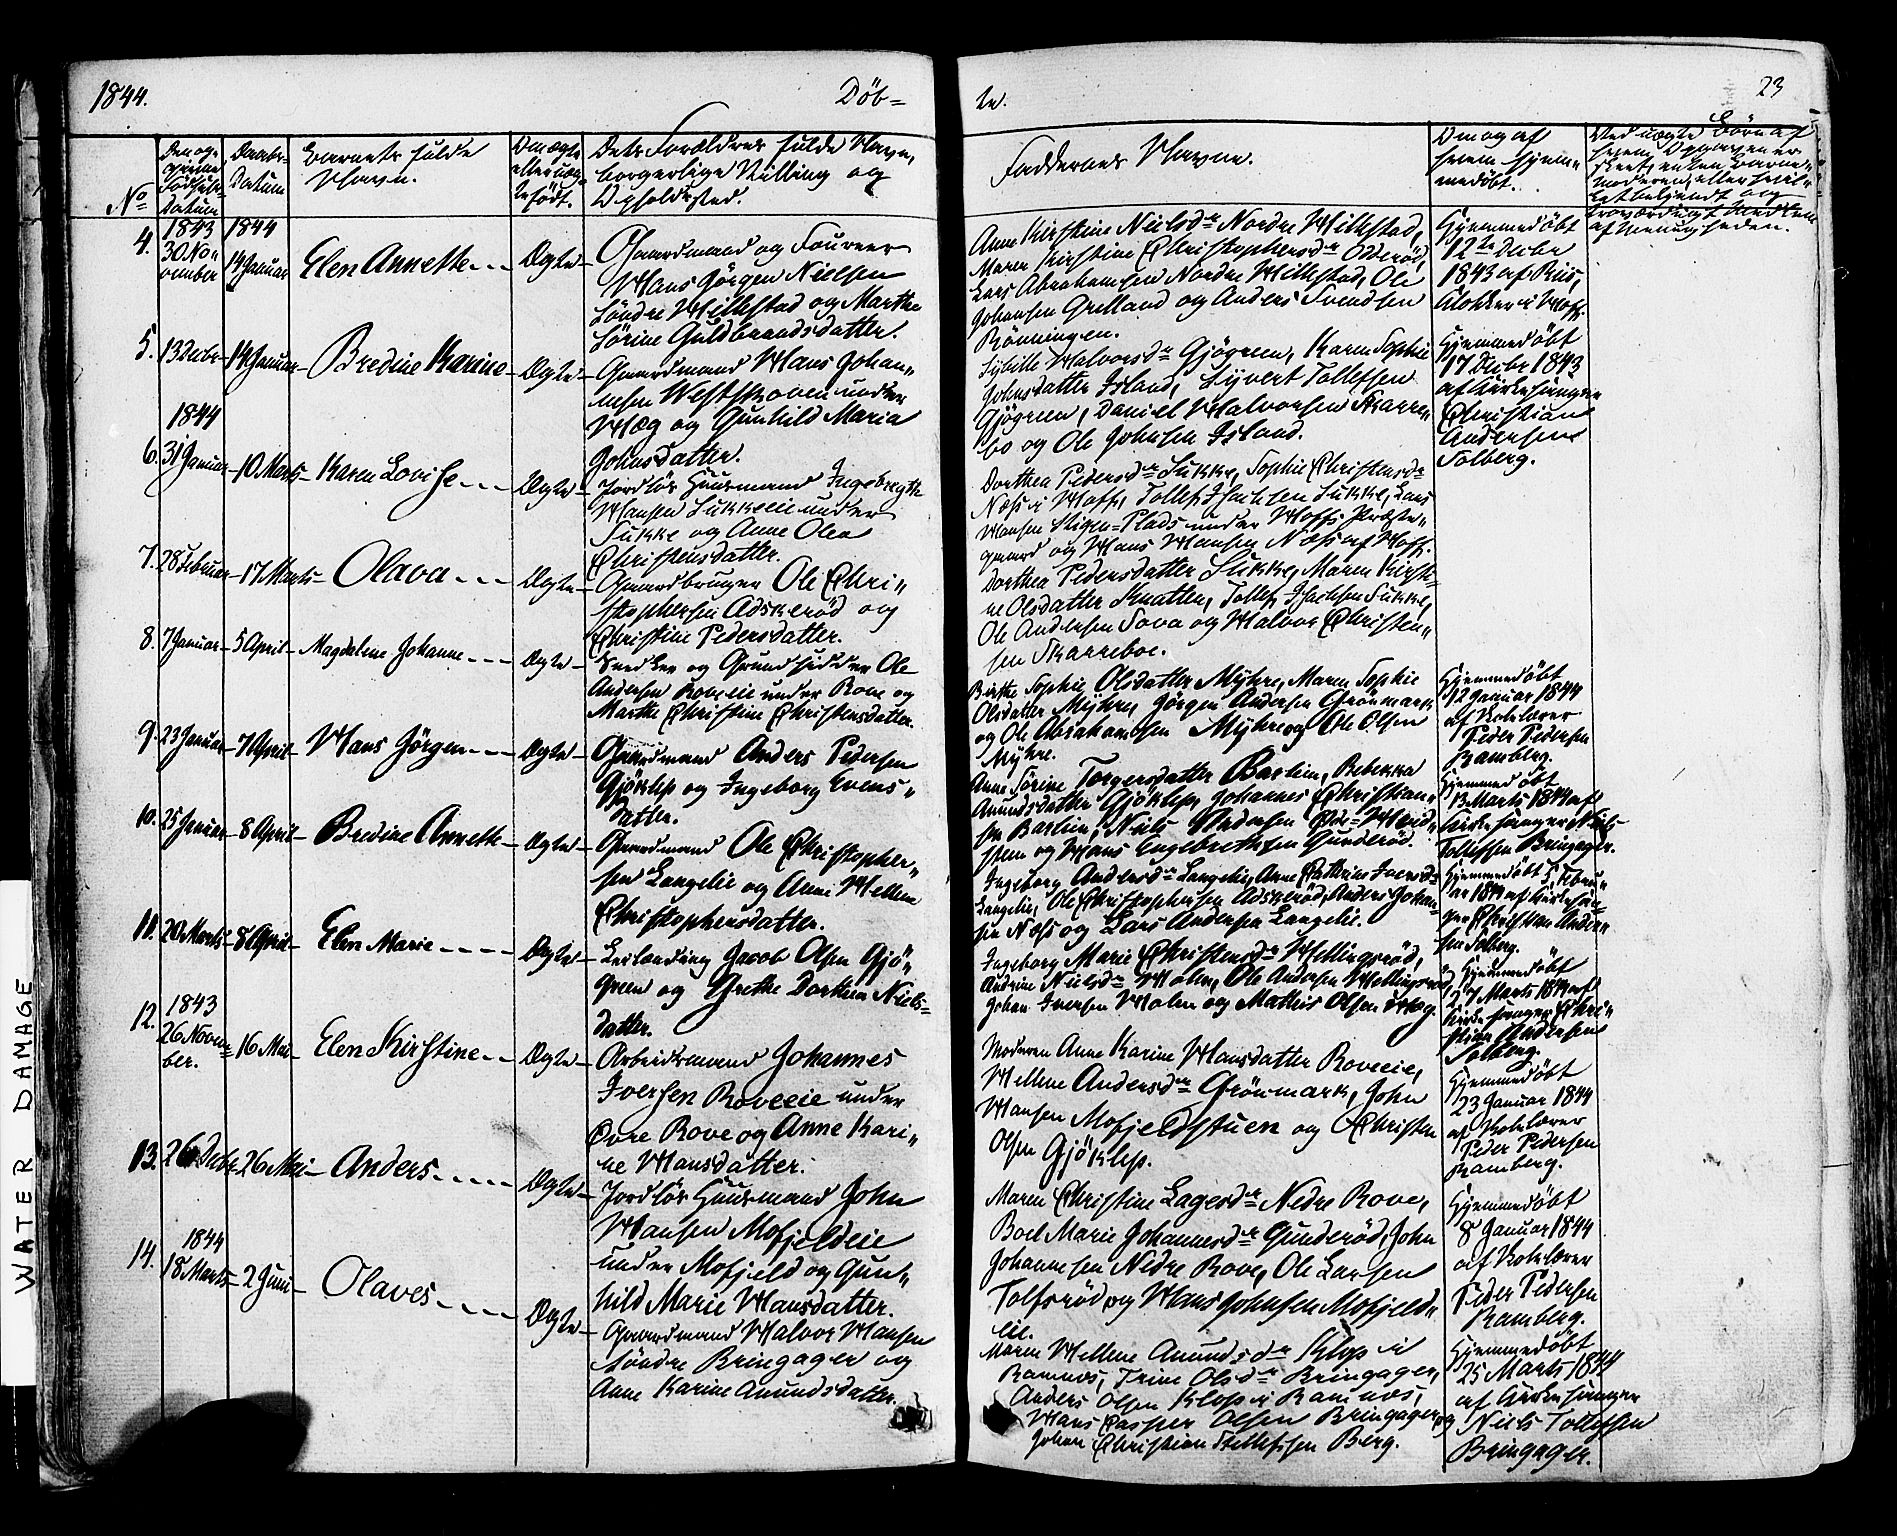 1844.
Døb=
te.
23
No
Den op-
givne
Fødsels-
Datum
Daabs-
Datum
Barnets fulde
Navn.
Om ægte
eller uæg-
te født.
Dets Forældres fulde Navn,
borgerlige Stilling og
Opholdssted.
Faddernes Navne.
Om og af
hvem hjem-
medøbt.
Ved uægte Børn af
hvem Opgaven er
skeet, enten Barne-
moderen, eller hvil-
ket bekjendt og
troværdigt Medlem
af Menigheden.
4.
1843
30 No-
vember
1844
14 Januar
Elen Annette
Ægte
Gaardmand og Foureer
Hans Jørgen Nielsen
Søndre Hillestad og Marthe
Sørine Guldbrandsdatter.
Anne Kirstine Nielsdr Nordre Hillestad,
Maren Kirstine Christophersdr Odderød,
Lars Abrahamsen Nordre Hillestad, Ole
Johansen Grelland og Anders Svendsen
Rønningen.
Hjemmedøbt
12te Decbr
1843 af Riis,
Klokker i Hoff.
5.
13 Decbr
14 Januar
Bredine Karine
Ægte
Gaardmand Hans Johan-
nesen Westskoven under
Hæg og Gunhild Maria
Johnsdatter.
Sybille Halvorsdr Gjøgreen, Karen Sophie
Johnsdatter Island, Syvert Tollefsen
Gjøgreen, Daniel Halvorsen Skarre-
bo og Ole Johnsen Island.
Hjemmedøbt
17 Decbr 1843
af Kirkesanger
Christian
Andersen
Solberg.
6.
1844
31 Januar
10 Marts
Karen Lovise
Ægte
Jordløs Huusmand Ingebregth
Hansen Sukkeeie under
Sukke og Anne Olea
Christensdatter.
Dorthea Pedersdr Sukke, Sophie Christensdr
Næs i Hoff, Tollef Isachsen Sukke, Lars
Hansen Stigen-Plads under Hoffs Præste-
gaard og Hans Hansen Næs af Hoff.
7.
28 Februar
17 Marts
Olava
Ægte
Gaardbruger Ole Chri-
stophersen Adskerød og
Christine Pedersdatter.
Dorthea Pedersdatter Sukke, Maren Kirsti-
ne Olsdatter Knatten, Tollef Isachsen Sukke,
Ole Andersen Sova og Halvor Christen-
sen Skarreboe.
8.
7 Januar
5 April
Magdalene Johanne
Ægte
Snedker og Grundsidder Ole
Andersen Roveeie under Rove og
Marthe Christine Christensdatter.
Birthe Sophie Olsdatter Myhre, Maren Sophie
Olsdatter Myhre, Jørgen Andersen Grønmark
og Ole Abrahamsen Myhre og Ole Olsen
Myhre.
Hjemmedøbt
12 Januar 1844
af Skolelærer
Peder Pedersen
Ramberg.
9.
23 Januar
7 April
Hans Jørgen
Ægte
Gaardmand Anders Pedersen
Gjøklep og Ingeborg Evens-
datter.
Anne Sørine Torgersdatter Barlien, Rebekka
Amundsdatter Gjøklep, Johannes Christian-
sen Barlien, Niels Andersen Øvre-Hvid-
steen og Hans Engebrethsen Gunderød.
Hjemmedøbt
13 Marts 1844 af
Kirkesanger Niels
Tollefsen Bringager.
10.
25 Januar
8 April
Bredine Annette
Ægte
Gaardmand Ole Christopher-
sen Langelie og Anne Hellene
Christophersdatter.
Ingeborg Andersdr Langelie, Anne Cathrine Iversdr
Langelie, Ole Christophersen Adskerød, Anders Johan-
sen Næs og Lars Andersen Langelie.
Hjemmedøbt 5 Febru-
ar 1844 af Kirkesan-
ger Christian Ander-
sen Solberg.
11.
20 Marts
8 April
Elen Marie
Ægte
Leilænding Jacob Olsen Gjø-
green og Grethe Dorthea Niels-
datter.
Ingeborg Marie Christensdr Hellingsrød,
Andrine Nielsdr Holm, Ole Andersen Hellingsrød,
Johan Iversen Holm og Mathis Olsen Hæg.
Hjemmedøbt
27 Marts 1844 af
Kirkesanger Chri-
stian Andersen
Solberg.
12.
1843
26 Novem-
ber.
16 Mai
Elen Kirstine
Ægte
Arbeidsmand Johannes
Iversen Roveeie under
Øvre Rove og Anne Kari-
ne Hansdatter.
Moderen Anne Karine Hansdatter Roveeie,
Hellene Andersdr Grønmark, John
Hansen Mofjeldstuen og Christen
Olsen Gjøklep.
Hjemmedøbt
23 Januar 1844
af Skolelærer
Peder Pedersen
Ramberg.
13.
26 Decbr
26 Mai
Anders
Ægte
Jordløs Huusmand John
Hansen Mofjeldeie
under Mofjeld og Gun-
hild Marie Hansdatter.
Maren Christine Lagesdr Nedre Rove,
Boel Marie Johannesdr Gunderød, John
Johannesen Nedre Rove, Ole Larsen
Tolfsrød og Hans Johnsen Mofjeld-
eie.
Hjemmedøbt
8 Januar 1844
af Skolelærer
Peder Pedersen
Ramberg.
14.
1844
18 Marts
2 Juni
Olaves
Ægte
Gaardmand Halvor Hansen
Søndre Bringager og
Anne Karine Amundsdatter.
Maren Hellene Amundsdr Klop i
Ramnæs, Trine Olsdr Bringager,
Anders Olsen Klop i Ramnæs,
Hans Casper Olsen Bringager og
Johan Christian Stillefsen Berg.
Hjemmedøbt
25 Marts 1844
af Kirkesanger
Niels Tollefsen
Bringager.
WATER DAMAGE